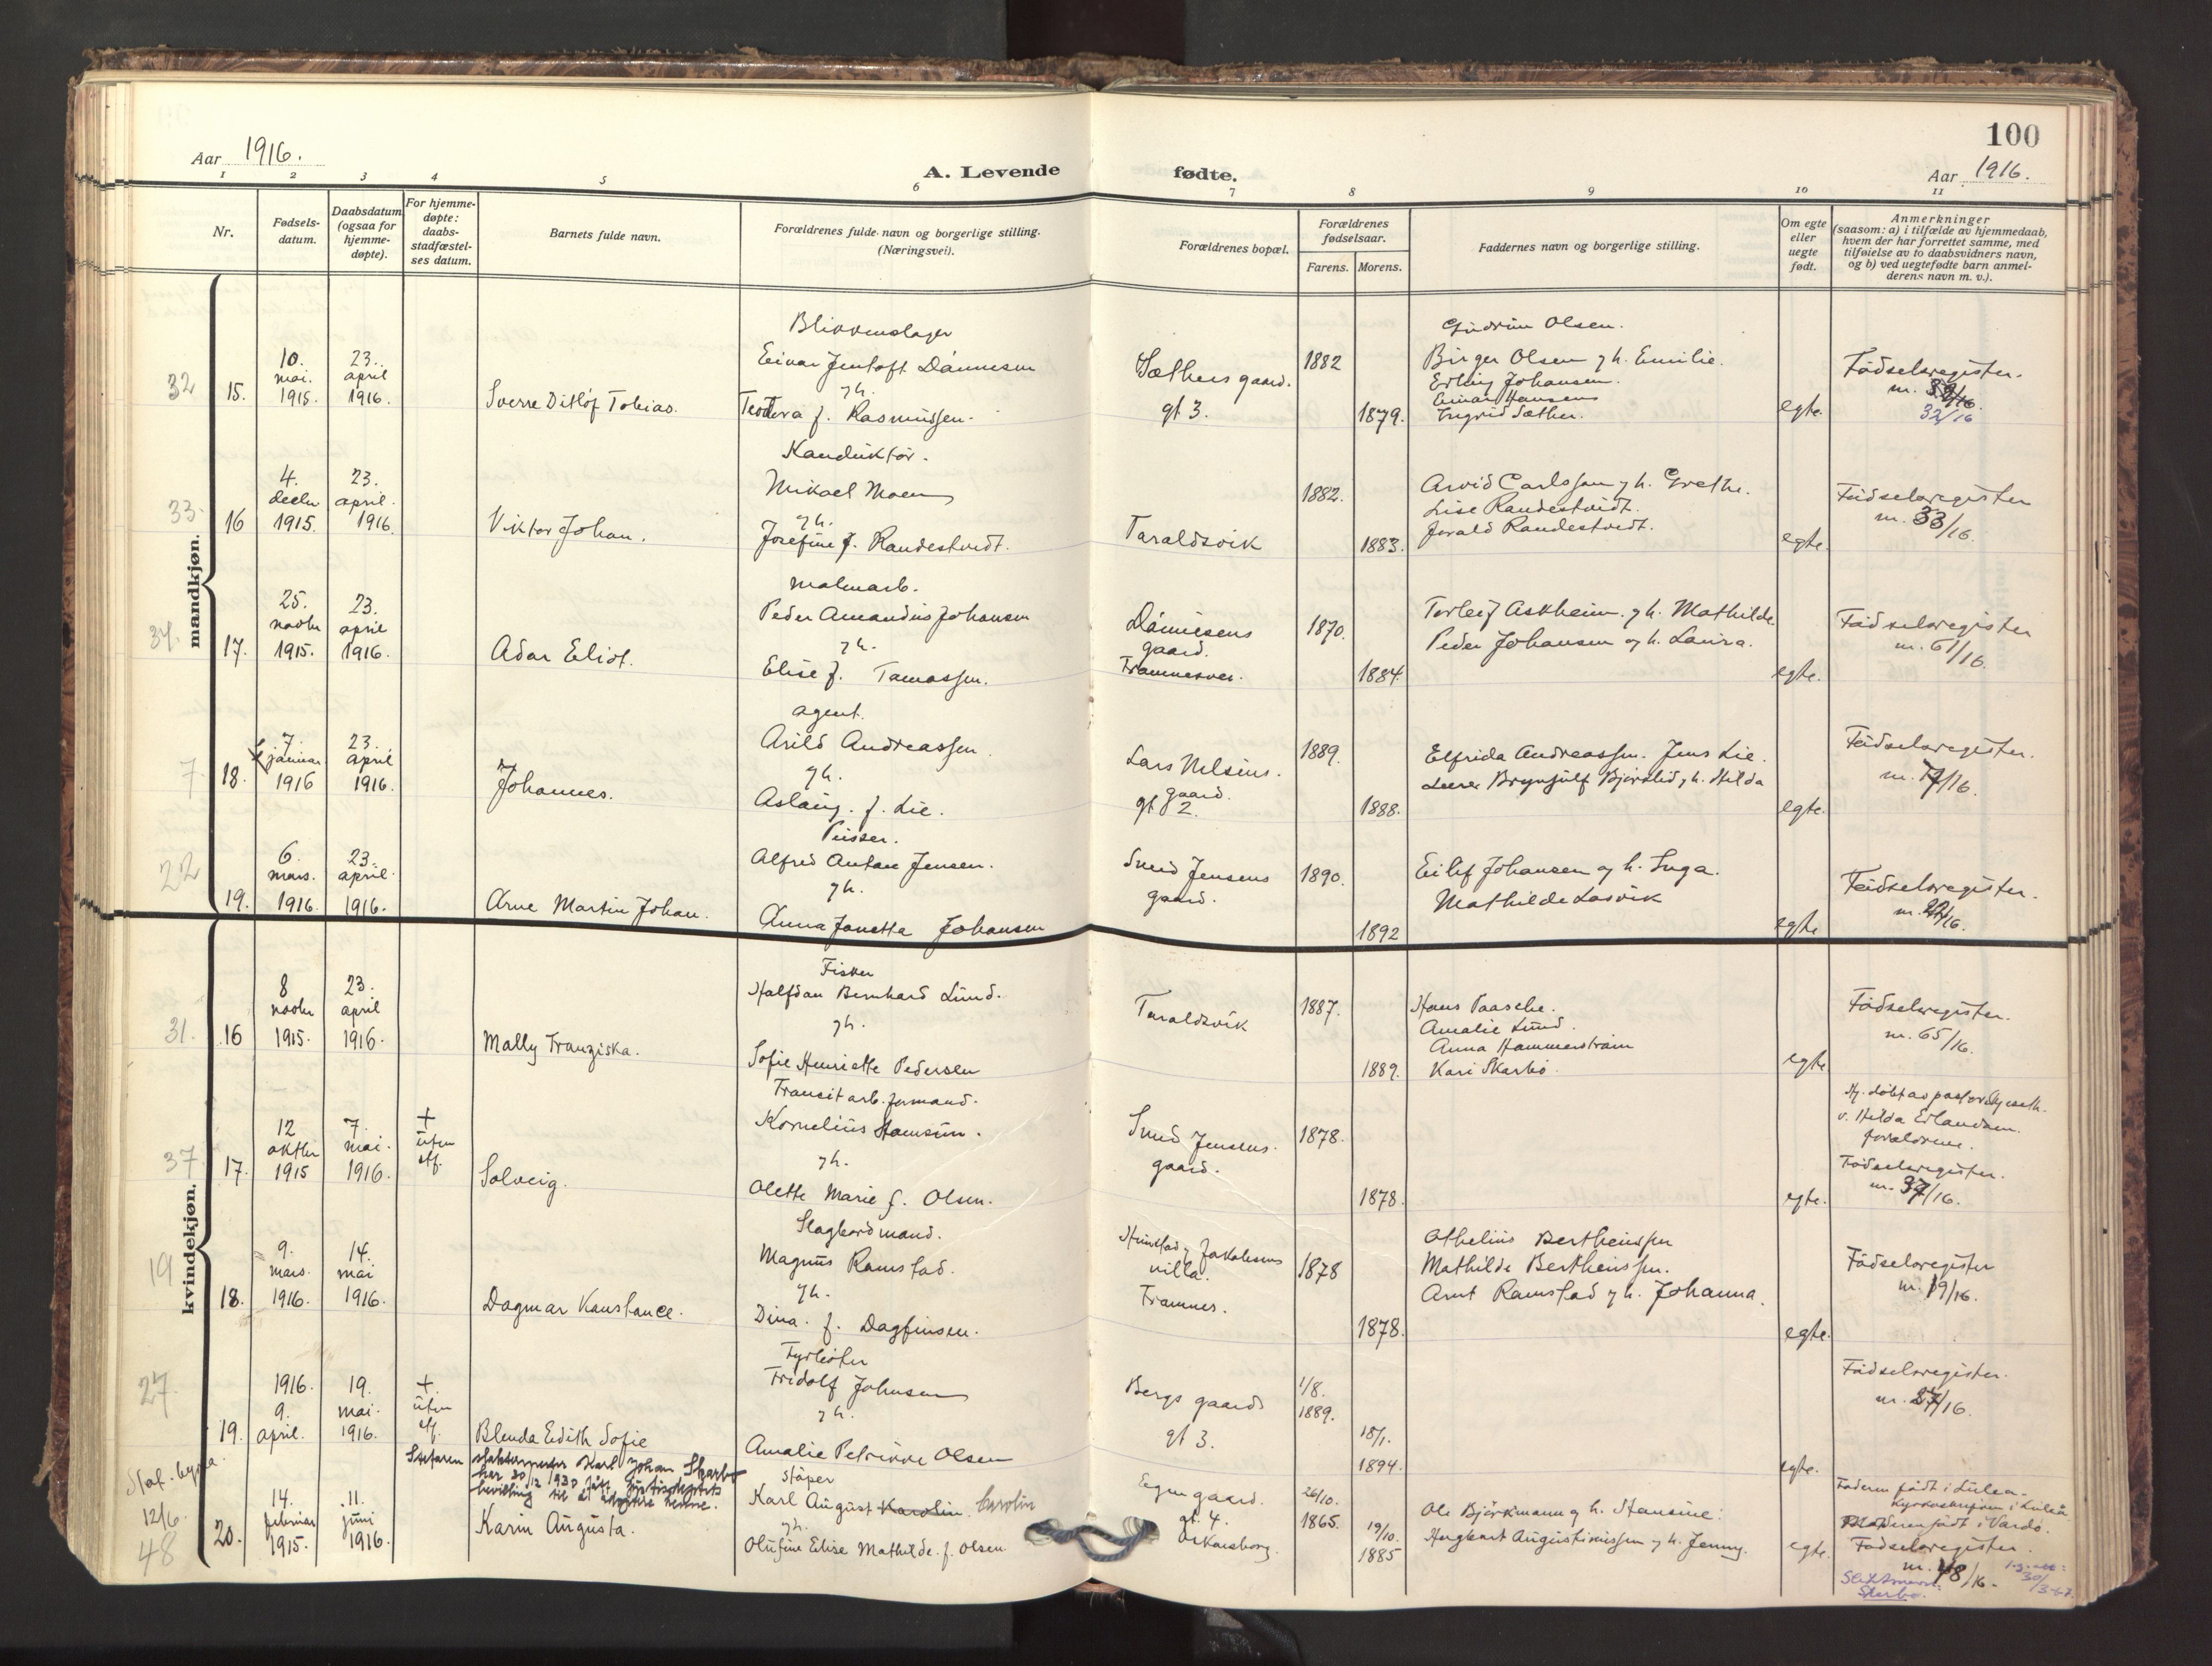 100
Aar 1916.
A. Levende fødte.
Aar 1916.
1 2 3 4 5 6 7 8 9 10 11
Nr.
Fødsels-
datum.
Daabsdatum
(ogsaa for
hjemme-
døpte).
For hjemme-
døpte:
daabs-
stadfæstel-
ses datum.
Barnets fulde navn.
Forældrenes fulde navn og borgerlige stilling.
(Næringsvei).
Forældrenes bopæl.
Forældrenes
fødselsaar.
Farens. Morens.
Faddernes navn og borgerlige stilling.
Om egte
eller
uegte
født.
Anmerkninger
(saasom: a) i tilfælde av hjemmedaab,
hvem der har forrettet samme, med
tilføielse av to daabsvidners navn,
og b) ved uegtefødte barn anmel-
derens navn m. v.).
mandkjøn.
32
15.
10.
mai.
1915.
23.
april
1916.
Sverre Ditlof Tobias.
Blikkenslager
Einar Jentoft Dännesen
gh.
Teodora f. Rasmussen.
Sæthers gaard.
gt 3.
1882
1879.
Gudrun Olsen.
Birger Olsen gh. Emilie.
Erling Johansen.
Einar Hansens
Ingrid Sæther.
egte.
Födselsregister.
nr. 32/16.
32/16
33.
16
4.
decbr
1915.
23.
april.
1916.
Viktor Johan.
Konduktør.
Mikael Moen
gh.
Josefine f. Randestvedt.
Taraldsvik
1882.
1883.
Arvid Carlsson gh. Grethe.
Lise Randestvedt.
Jorald Randestvedt.
egte.
Födselsregister
nr. 33/16.
34.
17.
25.
novbr
1915.
23.
april
1916.
Adar Eliot.
Malmarb.
Peder Amandus Johansen
gh.
Elise f. Tomassen.
Dännesens
gaard.
Framnesvei.
1870.
1884.
Torleif Askheim. gh. Mathilde.
Peder Johansen og h. Laura.
egte.
Födselsregister
nr. 61/16.
7.
18.
7.
januar
1916
23.
april
1916.
Johannes.
agent.
Arild Andreassen.
gh.
Aslaug. f. Lie.
Lars Nilsens.
gaard.
gt 2.
1889.
1888.
Elfrida Andreassen. Jens Lie.
Lærer Brynjulf Bjørklid gh. Hilda
egte.
Födselsregister.
nr. 7/16.
22
19.
6.
mars.
1916.
23.
april.
1916.
Arne Martin Johan.
Pusser.
Alfred Anton Jensen.
gh.
Anna Janetta Johansen
Smed Jensens
gaard.
1890.
1892
Eilif Johansen og h. Inga.
Mathilde Losvik
egte
Födselsregister.
nr. 22/16.
kvindekjøn.
31.
16
8
novbr
1915.
23.
april
1916.
Mally Franziska.
Fisker
Halfdan Bernhard Lund.
gh.
Sofie Henriette Pedersen
Taraldsvik
1887.
1889.
Hans Paasche.
Amalie Lund.
Anna Hammerstrøm
Kari Skarbø.
egte
Födselsregister.
nr. 65/16.
37
17.
12
oktbr
1915
7.
mai.
1916.
+
uten
eff.
Solveig.
Transitarb. formand.
Kornelius Hamsun.
gh.
Olette Marie f. Olsen.
Smed Jensens.
gaard.
1878.
1878.
egte.
Hj. döbt av pastor
v. Hilda Erlandsen.
foreldrene.
Födselsregister.
nr. 37/16.
19
18.
9.
mars.
1916.
14.
mai
1916.
Dagmar Konstance.
Slagbordmand.
Magnus Ramstad.
gh.
Dina. f. Dagfinsen.
Hunstad, Jakobsens
villa.
Framnes.
1878
1878.
Othelius Bertheussen
Mathilde Bertheussen.
Arnt Ramstad gh. Johanna.
egte.
Födselsregister
nr. 19/16.
27.
19.
1916.
9.
april.
19.
mai.
1916.
+.
uten
eff.
Blenda Edith Sofie
Fyrbøter
Fridolf Johnsen
gh.
Amalie Petrikke Olsen
Bergs gaard
gt 3.
1/8.
1889.
18/1.
1894.
egte.
Födselsregister.
nr. 27/16.
12/6.
48
20.
14.
februar
1915.
11.
juni
1916.
Stefaren
Karl Johan Skarbø
har 30/12 1930 fått justisdeptets
bevilling til å adoptere henne.
Karin Augusta.
støper
Karl August Karolin. Carolin
gh.
Olufine Elise Mathilde. f. Olsen
Egen gaard.
gt. 4.
Oskarsborg.
26/10.
1865.
19/10.
1885
Ole Björkmann og h. Hansine:
Augustinussen gh. Jenny.
egte.
Faderen født i Luleå.
Moderen født i Vardø.
Födselsregister.
nr. 48/16.
Slektsnavn:
Skarbø.